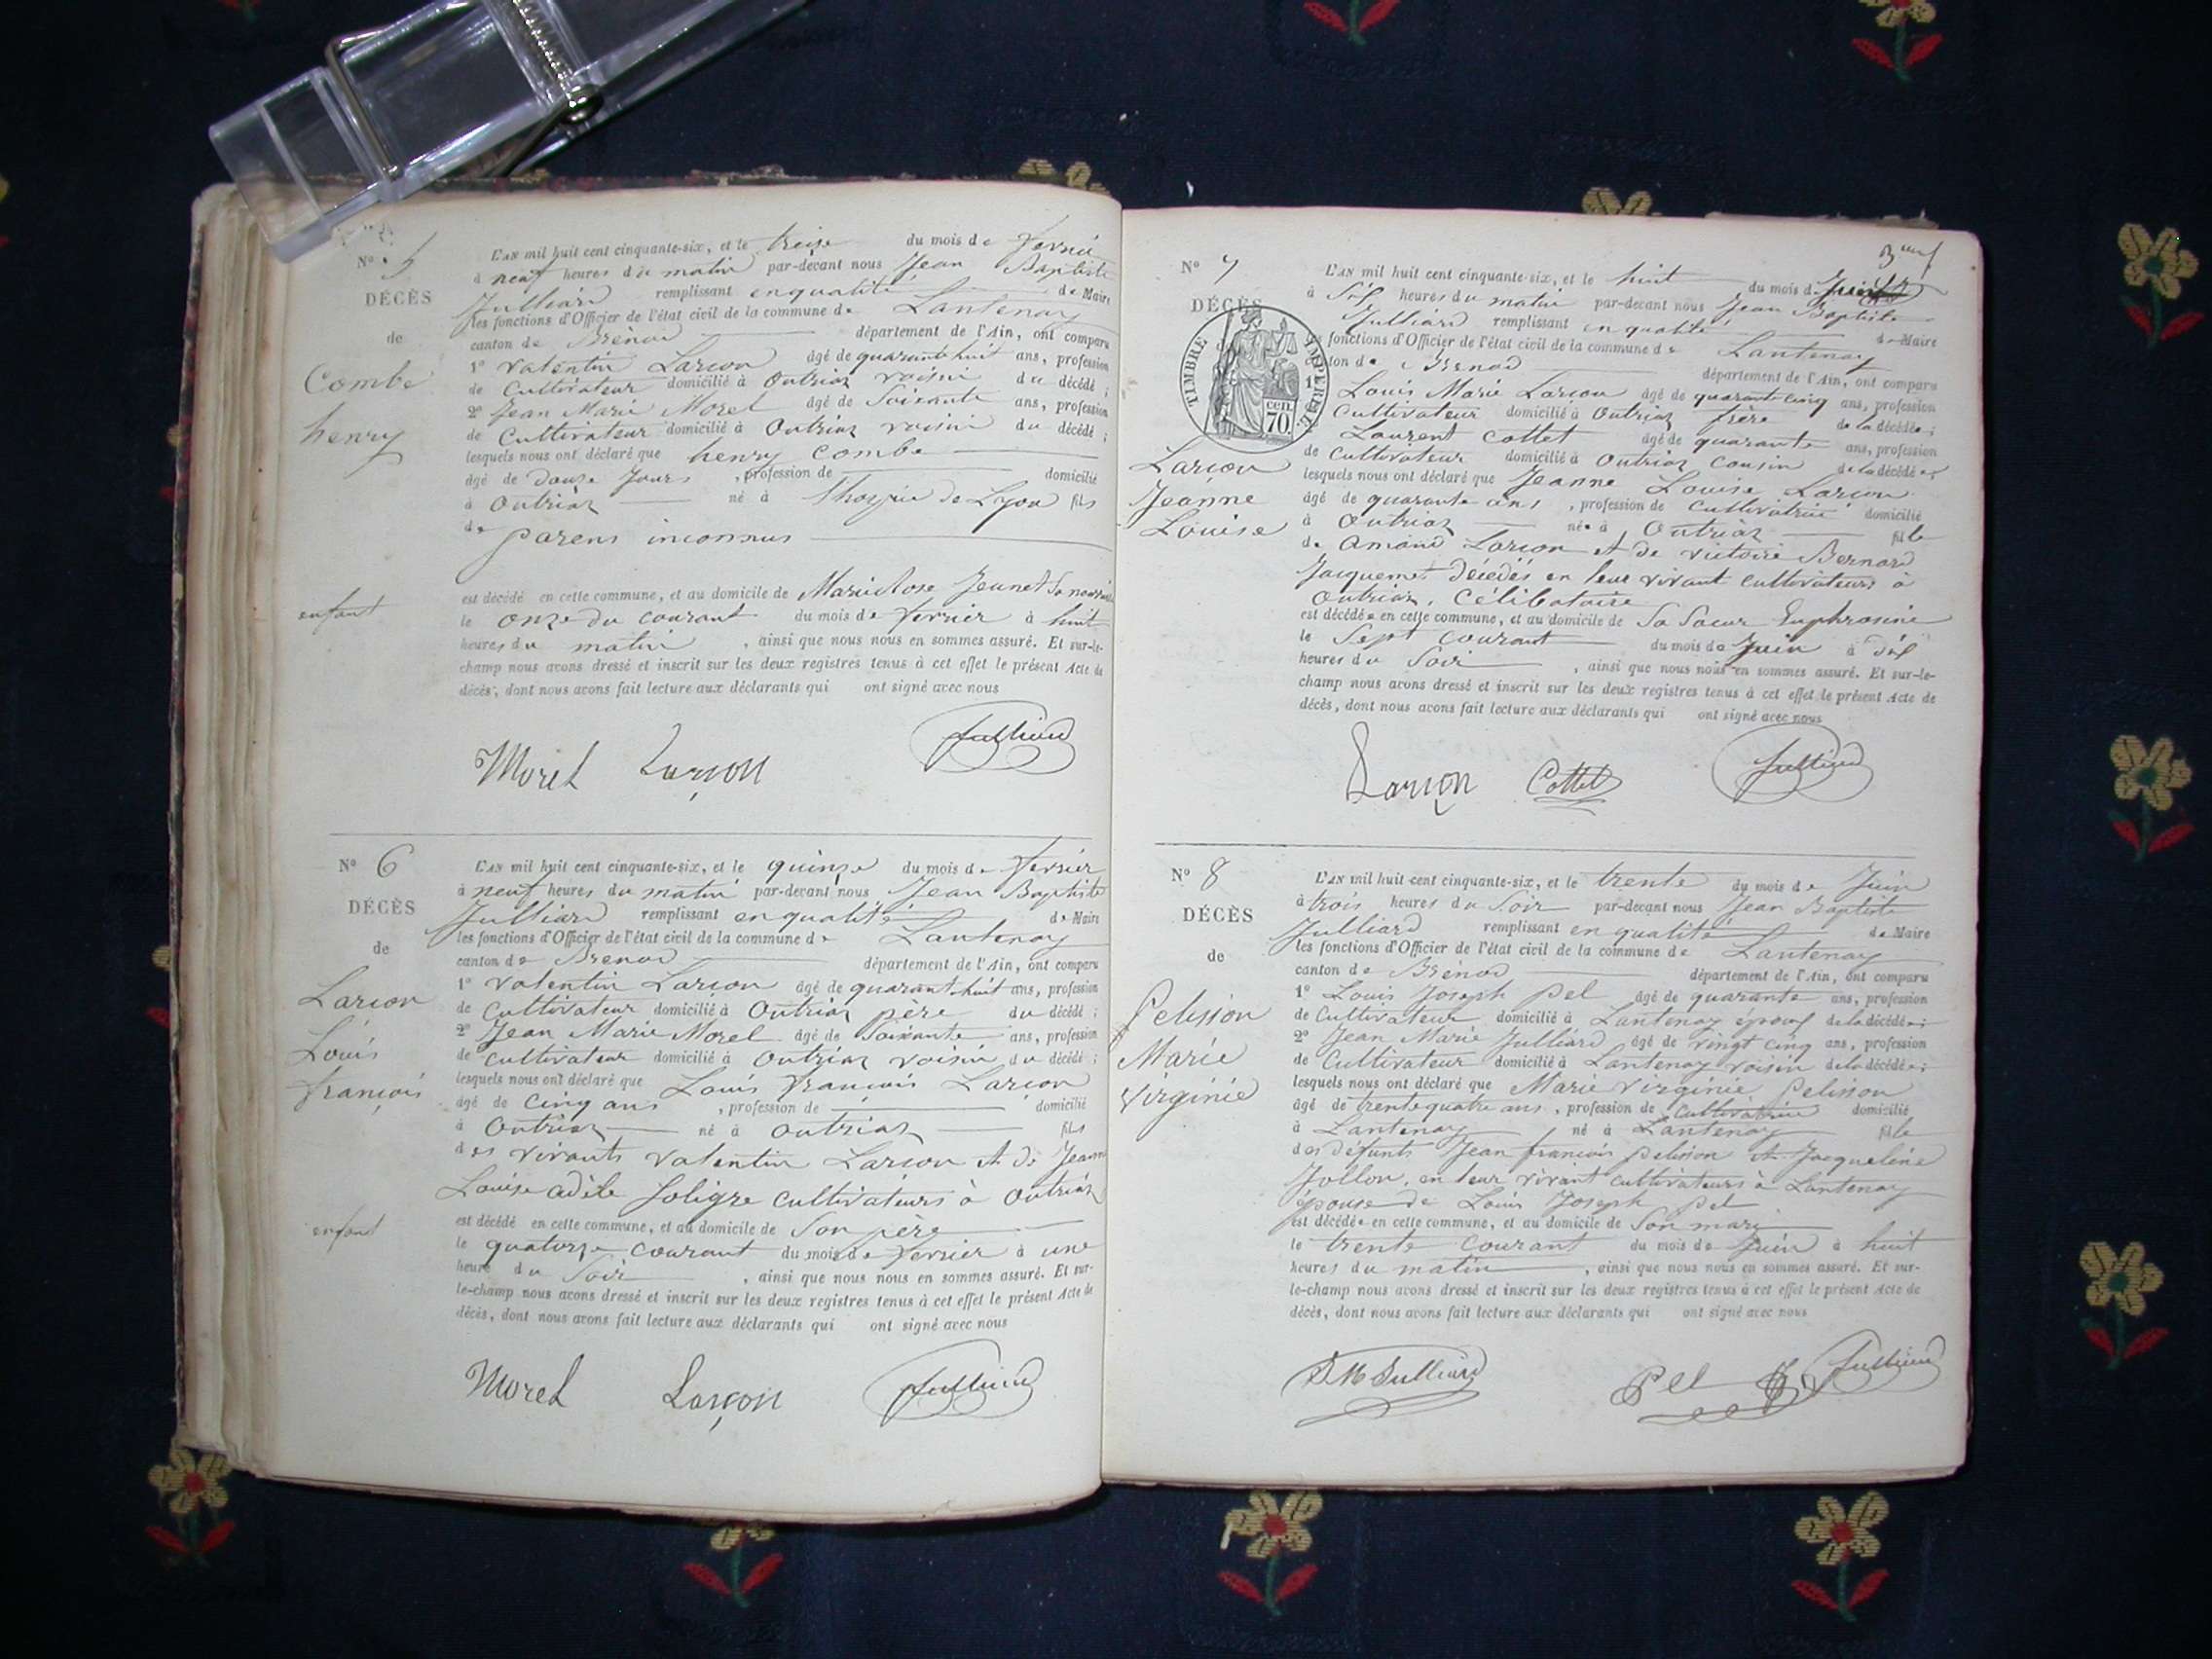 N° 5
DÉCÈS
de
Combe
henry
enfant
L'AN mil huit cent cinquante-six, et le treize du mois de fevrier
à neuf heures du matin par-devant nous Jean Baptiste
Julliard remplissant en qualité de Maire
les fonctions d'Officier de l'état civil de la commune de Lantenay
canton de Brénod département de l'Ain, ont comparu
1° Valentin Larçon âgé de quarante huit ans, profession
de Cultivateur domicilié à Outriaz voisin du décédé ;
2° Jean Marie Morel âgé de Soixante ans, profession
de Cultivateur domicilié à Outriaz voisin du décédé ;
lesquels nous ont déclaré que henry Combe
âgé de douze Jours , profession de domicilié
à Outriaz né à de Lyon fils
de parens inconnus
est décédé en cette commune, et au domicile de Marie Rose Jeunet Sa
le onze du courant du mois de fevrier à huit
heures du matin , ainsi que nous nous en sommes assuré. Et sur-le-
champ nous avons dressé et inscrit sur les deux registres tenus à cet effet le présent Acte de
décès, dont nous avons fait lecture aux déclarants qui ont signé avec nous
Morel Larçon Julliard
N° 6
DÉCÈS
de
Larçon
Louis
françois
enfant
L'AN mil huit cent cinquante-six, et le quinze du mois de fevrier
à neuf heures du matin par-devant nous Jean Baptiste
Julliard remplissant en qualité de Maire
les fonctions d'Officier de l'état civil de la commune de Lantenay
canton de Brénod département de l'Ain, ont comparu
1° Valentin Larçon âgé de quarante huit ans, profession
de Cultivateur domicilié à Outriaz père du décédé ;
2° Jean Marie Morel âgé de Soixante ans, profession
de Cultivateur domicilié à Outriaz voisin du décédé ;
lesquels nous ont déclaré que Louis françois Larçon
âgé de cinq ans , profession de domicilié
à Outriaz né à outriaz fils
des vivants Valentin Larçon et de Jeanne
Louise adèle Joligre cultivateurs à Outriaz
est décédé en cette commune, et au domicile de Son père
le quatorze courant du mois de fevrier à une
heure du Soir , ainsi que nous nous en sommes assuré. Et sur-
le-champ nous avons dressé et inscrit sur les deux registres tenus à cet effet le présent Acte de
décès, dont nous avons fait lecture aux déclarants qui ont signé avec nous
Morel Larçon Julliard
N° 7
DÉCÈS
TIMBRE IMPERIAL
70 cen.
Larçon
Jeanne
Louise
L'AN mil huit cent cinquante-six, et le huit du mois de Juin
à Sept heures du matin par-devant nous Jean Baptiste
Julliard remplissant en qualité de Maire
fonctions d'Officier de l'état civil de la commune de Lantenay
canton de Brénod département de l'Ain, ont comparu
Louis Marie Larçon âgé de quarante cinq ans, profession
Cultivateur domicilié à Outriaz frère de la décédée ;
Laurent Cottet âgé de quarante ans, profession
de Cultivateur domicilié à Outriaz Cousin de la décédée ;
lesquels nous ont déclaré que Jeanne Louise Larçon
âgé de quarante ans , profession de Cultivatrice domicilié
à Outriaz née à Outriaz fille
de Amand Larçon et de Victoire Bernard
Jacquemet décédés en leur vivant cultivateurs à
Outriaz, Célibataire
est décédée en cette commune, et au domicile de Sa Soeur Euphrosine
le Sept courant du mois de Juin à dix
heures du Soir , ainsi que nous nous en sommes assuré. Et sur-le-
champ nous avons dressé et inscrit sur les deux registres tenus à cet effet le présent Acte de
décès, dont nous avons fait lecture aux déclarants qui ont signé avec nous
Larçon Cottet Julliard
N° 8
DÉCÈS
de
Pelisson
Marie
Virginie
L'AN mil huit cent cinquante-six, et le trente du mois de Juin
à trois heures du Soir par-devant nous Jean Baptiste
Julliard remplissant en qualité de Maire
les fonctions d'Officier de l'état civil de la commune de Lantenay
canton de Brénod département de l'Ain, ont comparu
1° Louis Joseph Pel âgé de quarante ans, profession
de Cultivateur domicilié à Lantenay époux de la décédée ;
2° Jean Marie Julliard âgé de vingt cinq ans, profession
de Cultivateur domicilié à Lantenay voisin de la décédée ;
lesquels nous ont déclaré que Marie Virginie Pelisson
âgé de trente quatre ans , profession de Cultivatrice domicilié
à Lantenay né à Lantenay fille
des défunts Jean françois pelisson et Jacqueline
Jollon, en leur vivant cultivateurs à Lantenay
épouse de Louis Joseph Pel
est décédée en cette commune, et au domicile de Son mari
le trente courant du mois de Juin à huit
heures du matin , ainsi que nous nous en sommes assuré. Et sur-
le-champ nous avons dressé et inscrit sur les deux registres tenus à cet effet le présent Acte de
décès, dont nous avons fait lecture aux déclarants qui ont signé avec nous
J M Julliard Pel Julliard